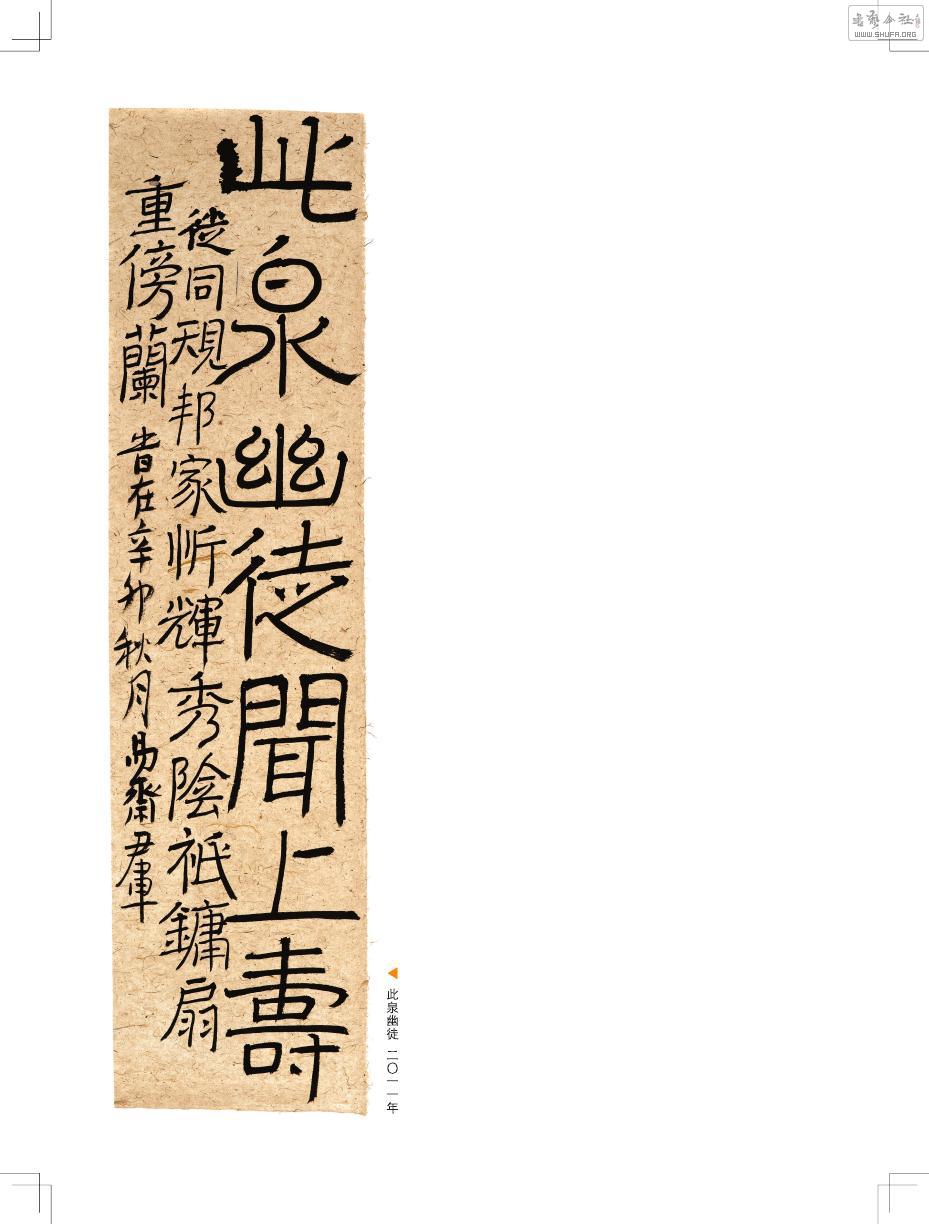 此泉幽徒聞上壽
徒同規邦家忻輝秀陰祇鏞扇
重傍蘭 昔在辛卯秋月 齋
此泉幽徒 二〇一一年
WWW.SHUFA.ORG